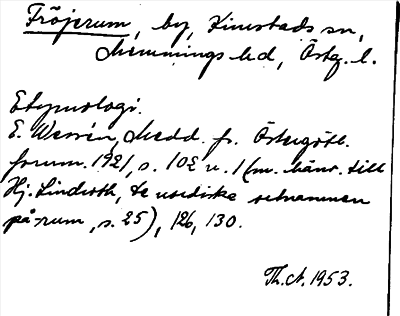 Fröjerum, by, Kimstads sn,
Memmings hd, Östg. l.
Etymologi.
E. Wessén, Medd. fr. Östergötl.
fornm. 1921, s. 102 n. 1 (m. hänv. till
Hj. Lindroth, De nordiska ortnamnen
på -rum, s. 25), 126, 130.
Th. A. 1953.